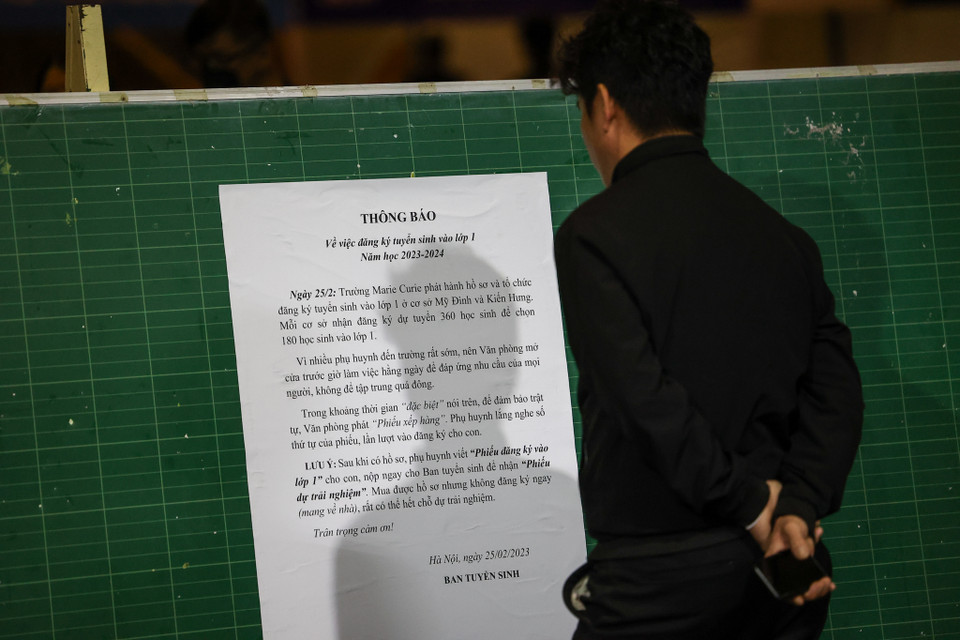 THÔNG BÁO
Về việc đăng ký tuyển sinh vào lớp 1
Năm học 2023-2024
Ngày 25/2: Trường Marie Curie phát hành hồ sơ và tổ chức
đăng ký tuyển sinh vào lớp 1 ở cơ sở Mỹ Đình và Kiến Hưng.
Mỗi cơ sở nhận đăng ký dự tuyển 360 học sinh để chọn
180 học sinh vào lớp 1.
Vì nhiều phụ huynh đến trường rất sớm, nên Văn phòng mở
cửa trước giờ làm việc hằng ngày để đáp ứng nhu cầu của mọi
người, không để tập trung quá đông.
Trong khoảng thời gian "đặc biệt" nói trên, để đảm bảo trật
tự, Văn phòng phát "Phiếu xếp hàng". Phụ huynh lắng nghe số
thứ tự của phiếu, lần lượt vào đăng ký cho con.
LƯU Ý: Sau khi có hồ sơ, phụ huynh viết "Phiếu đăng ký vào
lớp 1" cho con, nộp ngay cho Ban tuyển sinh để nhận "Phiếu
dự trải nghiệm". Mua được hồ sơ nhưng không đăng ký ngay
(mang về nhà), rất có thể hết chỗ dự trải nghiệm.
Trân trọng cảm ơn!
Hà Nội, ngày 25/02/2023
BAN TUYỂN SINH